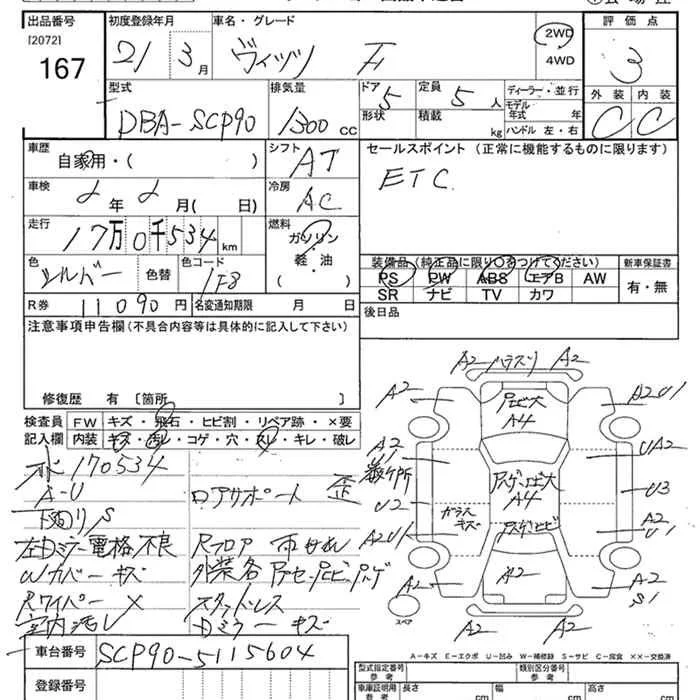 出品番号 初度登録年月 車名・グレード 評価点
[2072] 167 21 3月 ヴィッツ F 2WD 4WD 3
型式 排気量 ドア 5 定員 5人 ディーラー・並行 外装 内装
DBA-SCP90 1300cc 形状 積載 kg モデル年式 年 C C
ハンドル 左・右
車歴 自家用・( ) シフト AT セールスポイント (正常に機能するものに限ります)
車検 2年2月( 日) 冷房 AC ETC
走行 17万0千534km 燃料 ガソリン 軽・油 ( )
装備品(純正品に限り○をつけてください) 新車保証書
色 シルバー 色替 色コード 1F8 PS PW ABS エアB AW 有・無
SR ナビ TV カワ
R券 11090円 名変通知期限 月 日 後日品
注意事項申告欄(不具合内容等は具体的に記入して下さい)
修復歴 有 〔箇所 〕
検査員 FW キズ・飛石・ヒビ割・リペア跡・×要
記入欄 内装 キズ・汚レ・コゲ・穴・スレ・キレ・破レ
170534
A-U ロアサポート 歪
下回りS
左Dミラー電格不良 Rフロア 雨サれ
Wカバーキズ
Rワイパー× スタッドレス
室内汚レ Dミラーキズ
A2 A2
A2 A2U1
A4
A2 UA2
U2 A4 U3
ガラスキズ
A2U1 A2U
A2 A2 A2S1
スペア
A2 A2
A-キズ E-エクボ U-凹み W-補修跡 S-サビ C-腐食 XX-交換済
車台番号 SCP90-5115604
型式指定番号 参考 類別区分番号 参考
登録番号
車庫証明用 参考 長さ cm 幅 cm 高さ cm